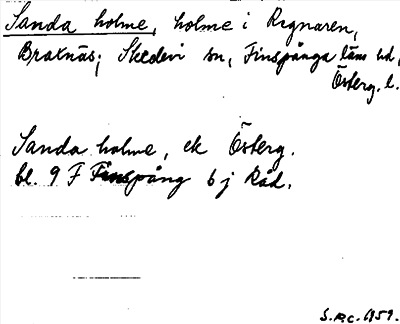 Sanda holme, holme i Regnaren,
Braxnäs, Skedevi sn, Finspånga läns hd,
Österg. l.
Sanda holme, ek Österg.
bl. 9 F Finspång 6 j Råd.
S.R.C. 1959.